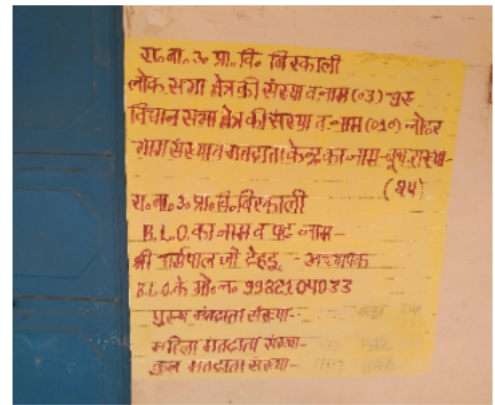 रा. बा. उ. प्रा. वि. बिरकाली
लोक सभा क्षेत्र की संख्या व नाम (03) चुरू
विधान सभा क्षेत्र की संख्या व नाम (010) नोहर
भाग संख्या व मतदाता केन्द्र का नाम - बूथ संख्या -
(24)
रा. बा. उ. प्रा. वि. बिरकाली
B.L.O. का नाम व पद नाम -
श्री धर्मपाल जी टेहडू - अध्यापक
B.L.O. के मो. न. 9982104033
पुरुष मतदाता संख्या -
महिला मतदाता संख्या -
कुल मतदाता संख्या -